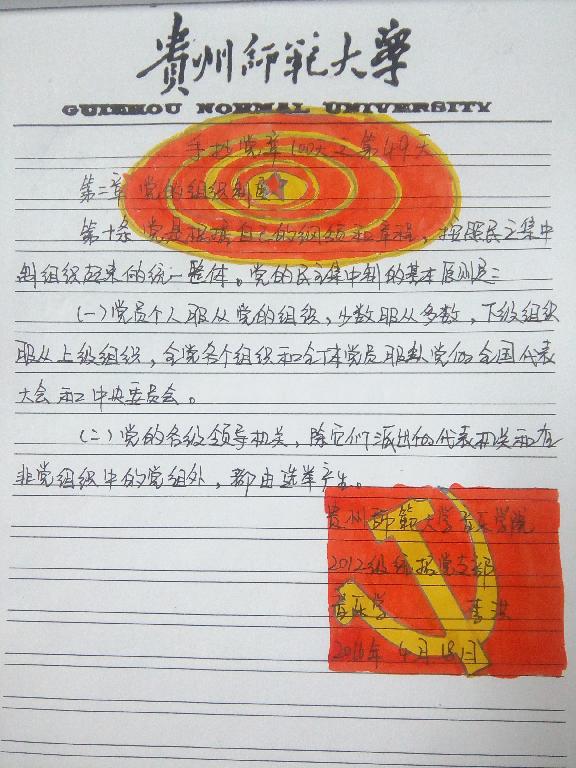 貴州师範大學
GUIZHOU NORMAL UNIVERSITY
手抄党章100天之第49天
第二章 党的组织制度
第十条 党是根据自己的纲领和章程，按照民主集中
制组织起来的统一整体。党的民主集中制的基本原则是：
（一）党员个人服从党的组织，少数服从多数，下级组织
服从上级组织，全党各个组织和全体党员服从党的全国代表
大会和中央委员会。
（二）党的各级领导机关，除它们派出的代表机关和在
非党组织中的党组外，都由选举产生。
贵州师範大学音乐学院
2012级统招党支部
音乐学 李洪
2016年4月18日